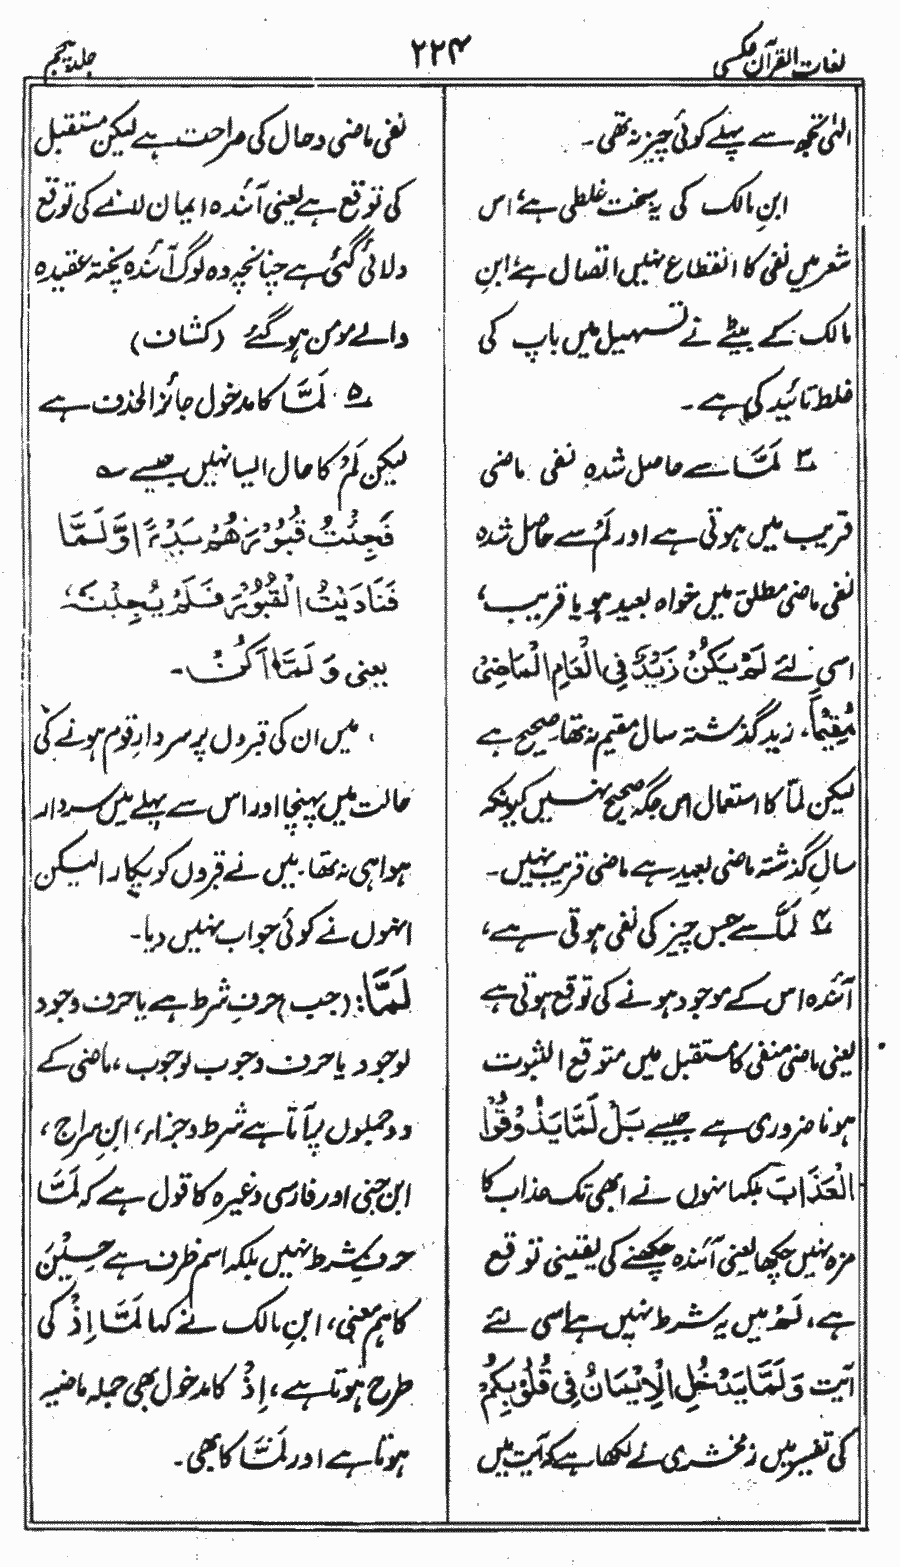 لغات القرآن مکسی
۲۲۴
جلد پنجم
الٰہی تجھ سے پہلے کوئی چیز نہ تھی۔
ابنِ مالک کی یہ سخت غلطی ہے، اس
شعر میں نفی کا انقطاع نہیں اتصال ہے، ابنِ
مالک کے بیٹے نے تسہیل میں باپ کی
غلط تائید کی ہے۔
۳ لَمَّا سے حاصل شدہ نفی ماضی
قریب میں ہوتی ہے اور لَمْ سے حاصل شدہ
نفی ماضی مطلق میں خواہ بعید ہو یا قریب،
اسی لئے لَمْ یَکُنْ زَیْدٌ فِی الْعَامِ الْمَاضِیْ
مُقِیْمًا، زید گذشتہ سال مقیم نہ تھا صحیح ہے
لیکن لمّا کا استعمال اس جگہ صحیح نہیں کیونکہ
سالِ گذشتہ ماضی بعید ہے ماضی قریب نہیں۔
۴ لَمَّا سے جس چیز کی نفی ہوتی ہے،
آئندہ اس کے موجود ہونے کی توقع ہوتی ہے
یعنی ماضی منفی کا مستقبل میں متوقع الثبوت
ہونا ضروری ہے جیسے بَلْ لَمَّا یَذُوْقُوا
الْعَذَابَ بلکہ انہوں نے ابھی تک عذاب کا
مزہ نہیں چکھا یعنی آئندہ چکھنے کی یقینی توقع
ہے، لَمْ میں یہ شرط نہیں ہے اسی لئے
آیت وَلَمَّا یَدْخُلِ الْاِیْمَانُ فِیْ قُلُوْبِکُمْ
کی تفسیر میں زمخشری نے لکھا ہے کہ آیت میں
نفی ماضی و حال کی صراحت ہے لیکن مستقبل
کی توقع ہے یعنی آئندہ ایمان لانے کی توقع
دلائی گئی ہے چنانچہ وہ لوگ آئندہ پختہ عقیدہ
والے مومن ہو گئے (کشاف)
۵ لَمَّا کا مدخول جائز الحذف ہے
لیکن لَمْ کا حال ایسا نہیں جیسے ؎
فَجِئْتُ قُبُوْرَهُمْ بَدْءًا وَّ لَمَّا
فَنَادَیْتُ الْقُبُوْرَ فَلَمْ یُجِبْنَهٗ
یعنی وَ لَمَّا اَکُنْ۔
میں ان کی قبروں پر سردارِ قوم ہونے کی
حالت میں پہنچا اور اس سے پہلے میں سردار
ہوا ہی نہ تھا۔ میں نے قبروں کو پکارا لیکن
انہوں نے کوئی جواب نہیں دیا۔
لَمَّا: (جب) حرفِ شرط ہے یا حرف وجود
لوجود یا حرف وجوب لوجوب، ماضی کے
دو جملوں پر آتا ہے شرط و جزاء، ابنِ سراج،
ابن جنی اور فارسی وغیرہ کا قول ہے کہ لَمَّا
حرفِ شرط نہیں بلکہ اسم ظرف ہے حِیْنَ
کا ہم معنی، ابنِ مالک نے کہا لَمَّا اِذْ کی
طرح ہوتا ہے، اِذْ کا مدخول بھی جملہ ماضیہ
ہوتا ہے اور لَمَّا کا بھی۔